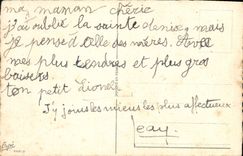 ma maman chérie
j'ai oublié la sainte denise mais
je pense à celle des mères. Avec
mes plus tendres et plus gros
baisers.
ton petit Lionel
J'y joins les miens les plus affectueux